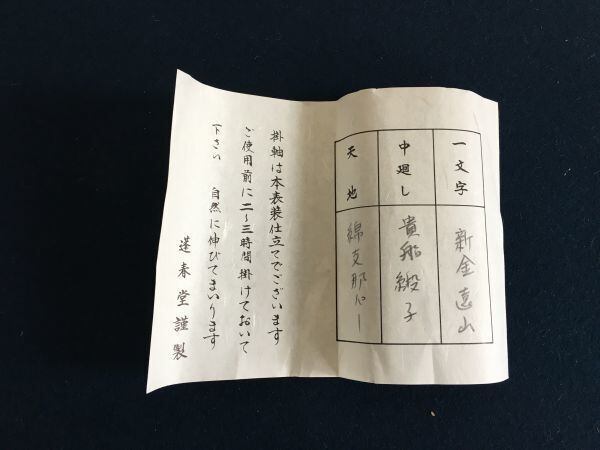 一文字 新金遠山
中廻し 貴船緞子
天地 綿支那パー
掛軸は本表装仕立てでございます
ご使用前に二〜三時間掛けておいて
下さい 自然に伸びてまいります
蓬春堂謹製